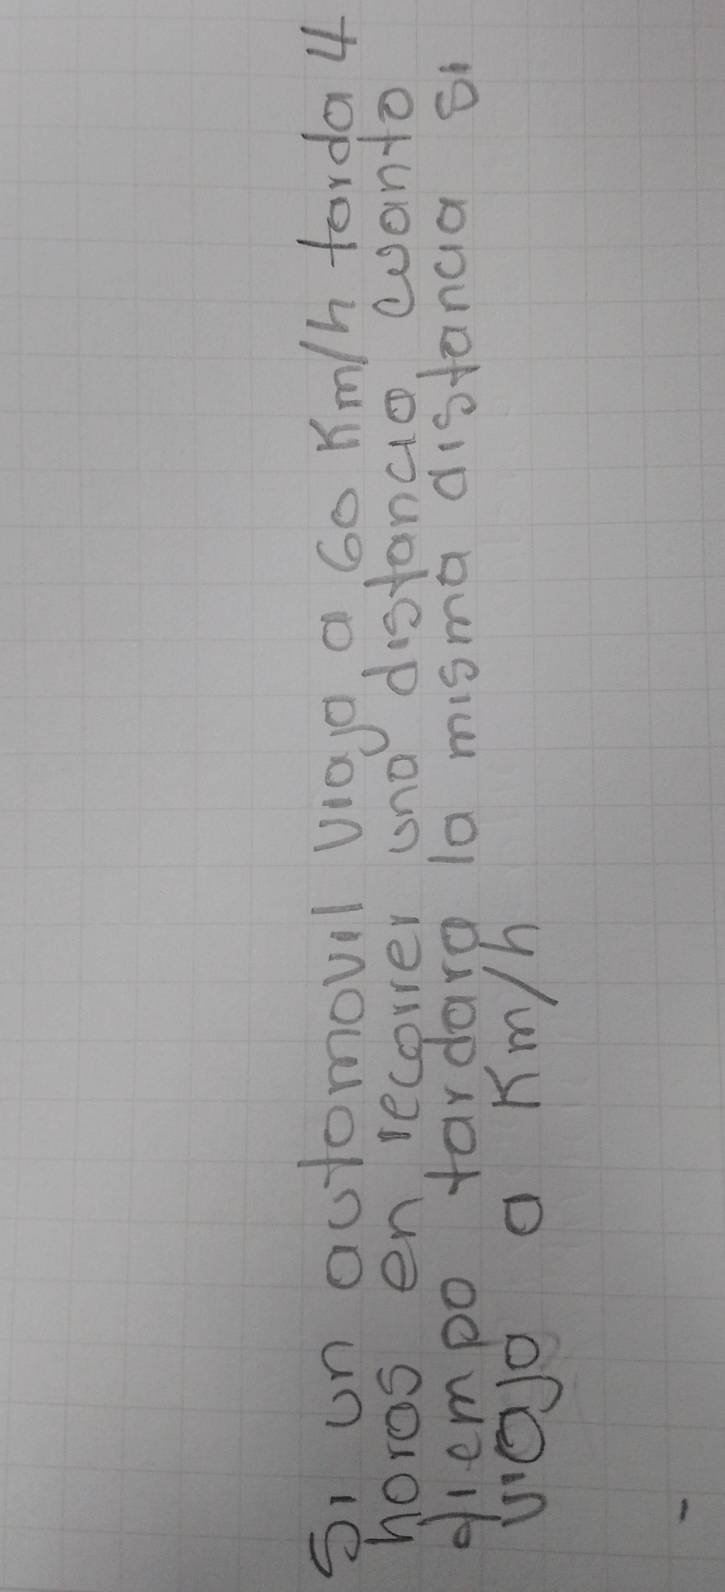 Si un automovil viaja a 60 Km/h tarda 4
horas en recorrer una distancia cuanto
tiempo tardara la misma distancia si
viaja a Km/h